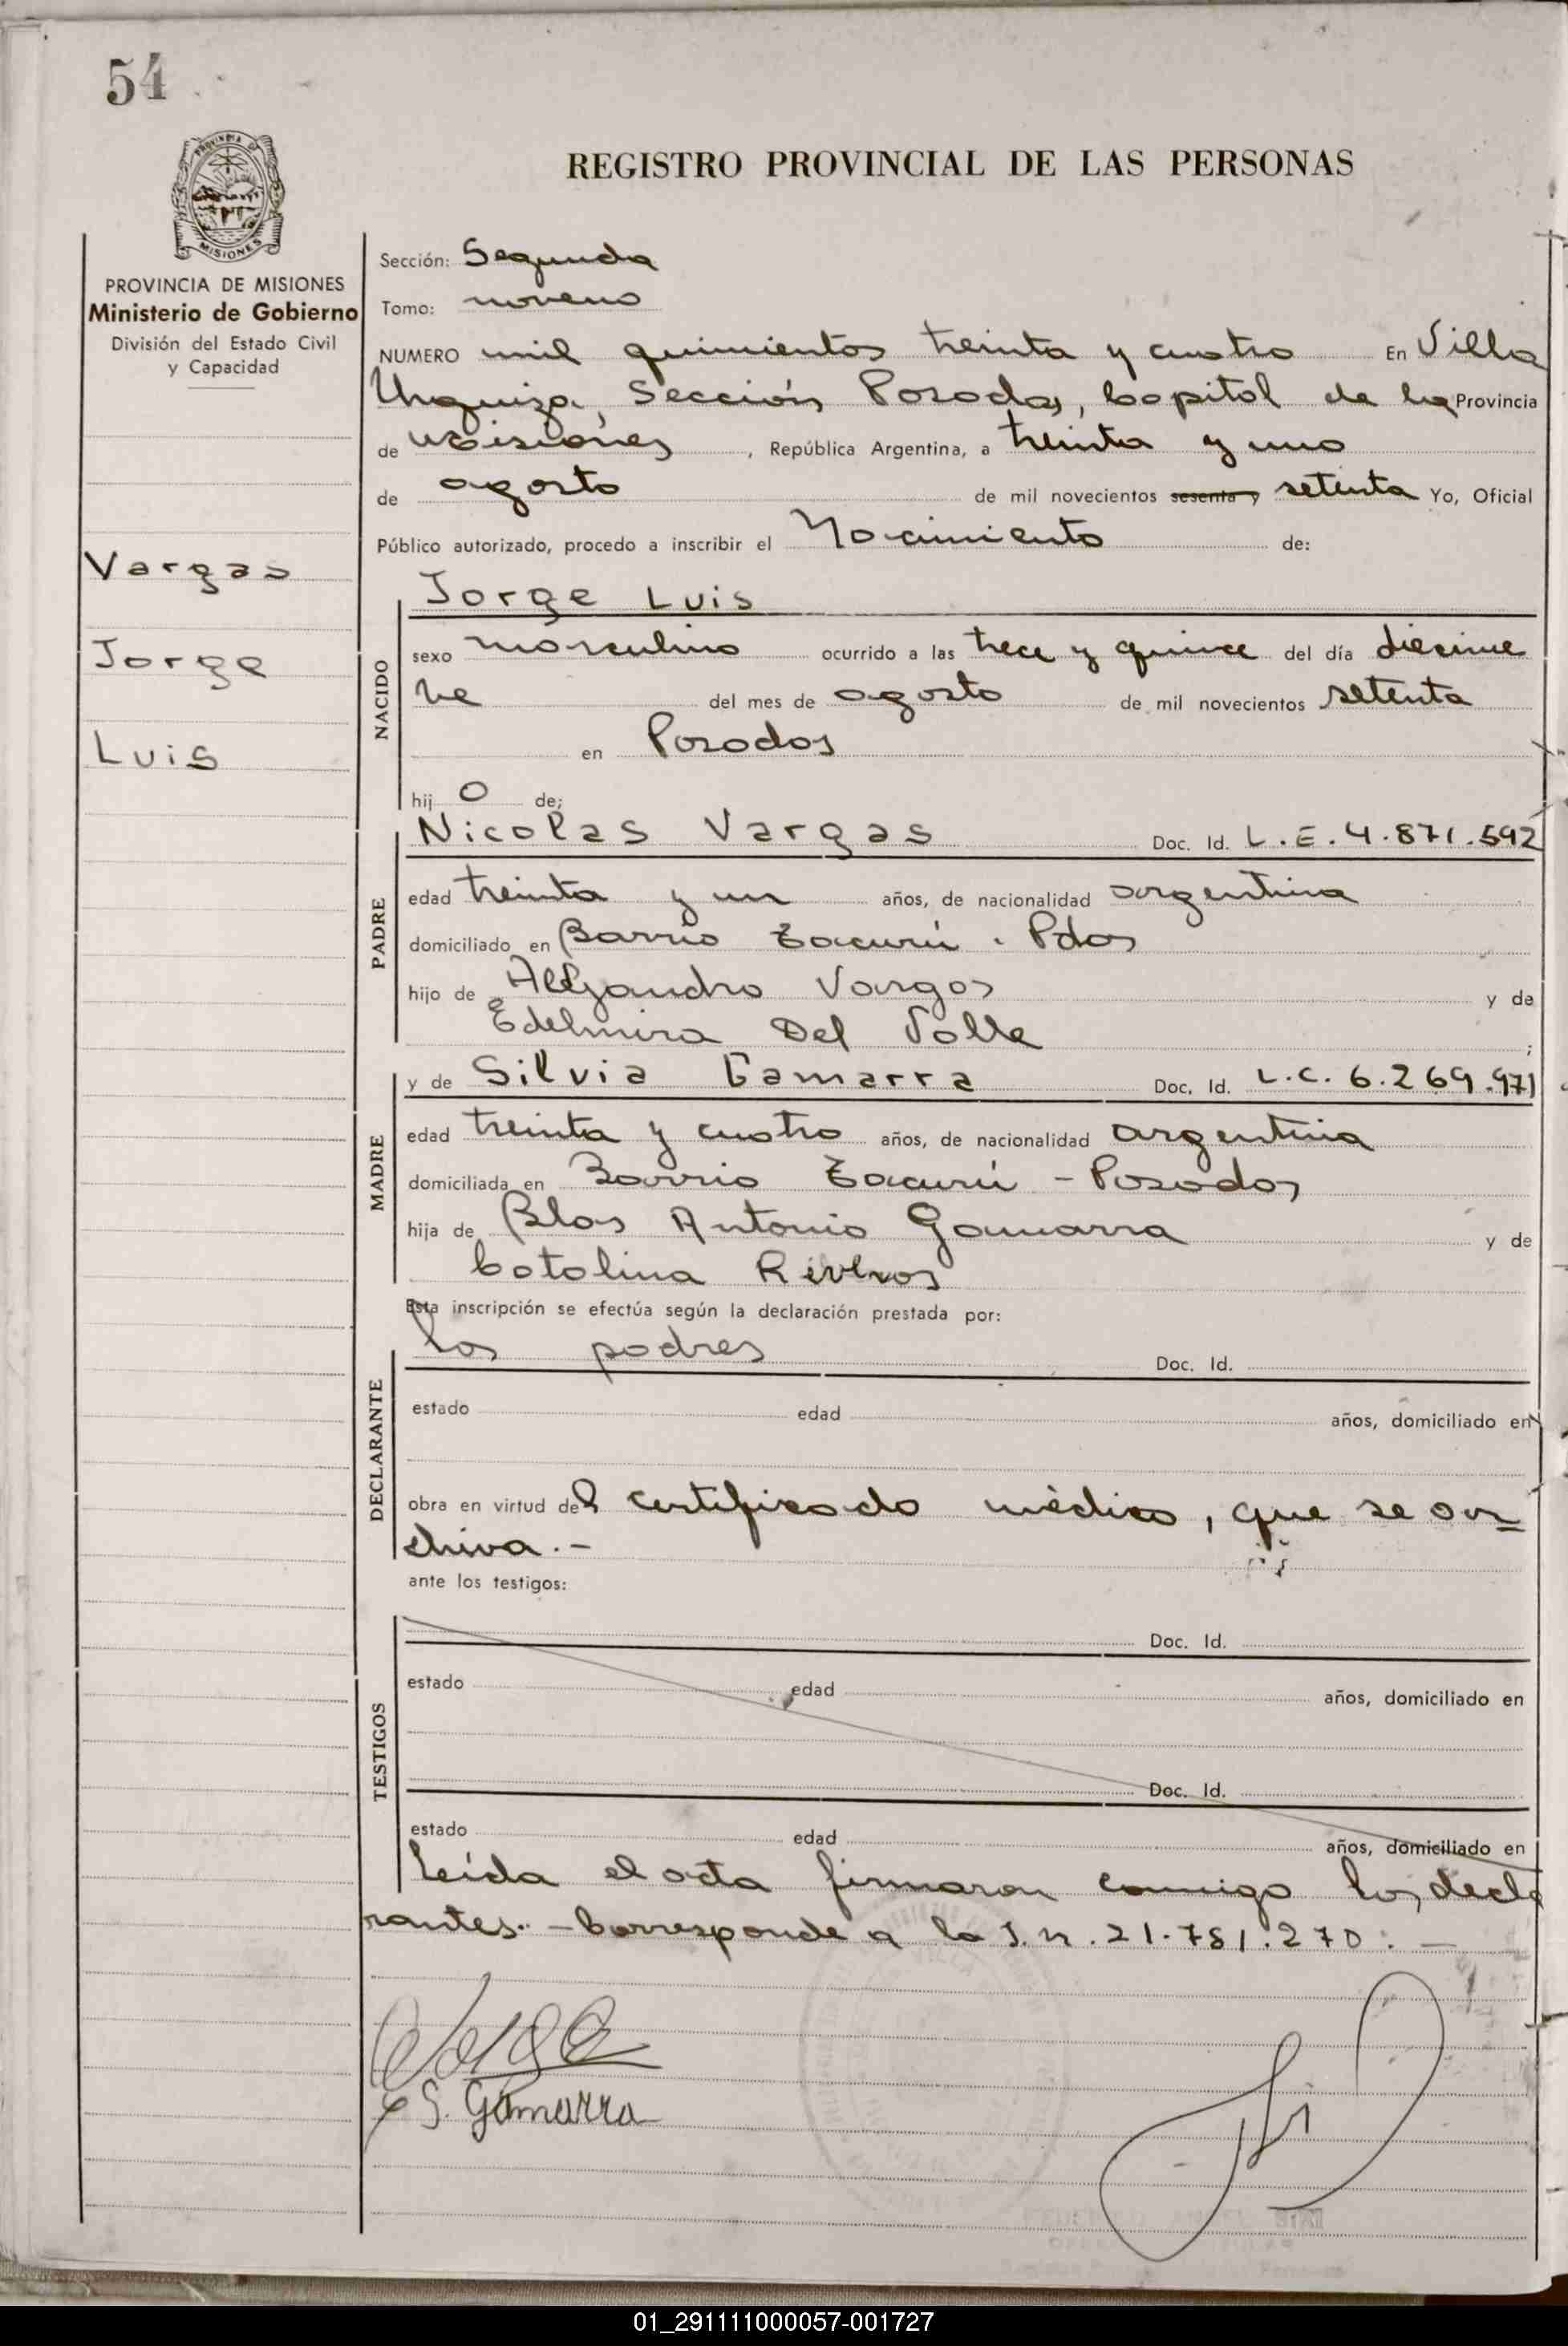 54
PROVINCIA DE
MISIONES
PROVINCIA DE MISIONES
Ministerio de Gobierno
División del Estado Civil
y Capacidad
Vargas
Jorge
Luis
REGISTRO PROVINCIAL DE LAS PERSONAS
Sección: Segunda
Tomo: noveno
NUMERO mil quinientos treinta y cuatro En Villa
Urquiza, Sección Posadas, Capital de la Provincia
de Misiones, República Argentina, a treinta y uno
de agosto de mil novecientos sesenta y setenta Yo, Oficial
Público autorizado, procedo a inscribir el Nacimiento de:
NACIDO
Jorge Luis
sexo masculino ocurrido a las trece y quince del día diecinue
ve del mes de agosto de mil novecientos setenta
en Posadas
hij o de;
PADRE
Nicolas Vargas Doc. Id. L.E. 4.871.592
edad treinta y un años, de nacionalidad argentina
domiciliado en Barrio Tacurú. Pdas
hijo de Alejandro Vargas y de
Edelmira Del Valle ;
MADRE
y de Silvia Gamarra Doc. Id. L.C. 6.269.971
edad treinta y cuatro años, de nacionalidad argentina
domiciliada en Barrio Tacurú - Posadas
hija de Blas Antonio Gamarra y de
Catalina Riveros
Esta inscripción se efectúa según la declaración prestada por:
DECLARANTE
los padres Doc. Id.
estado edad años, domiciliado en
obra en virtud del certificado médico, que se ar=
chiva.-
ante los testigos:
TESTIGOS
Doc. Id.
estado edad años, domiciliado en
Doc. Id.
estado edad años, domiciliado en
Leída el acta firmaron conmigo los decla
rantes.- Corresponde a la I.N. 21.781.270.-
S. Gamarra
01_291111000057-001727